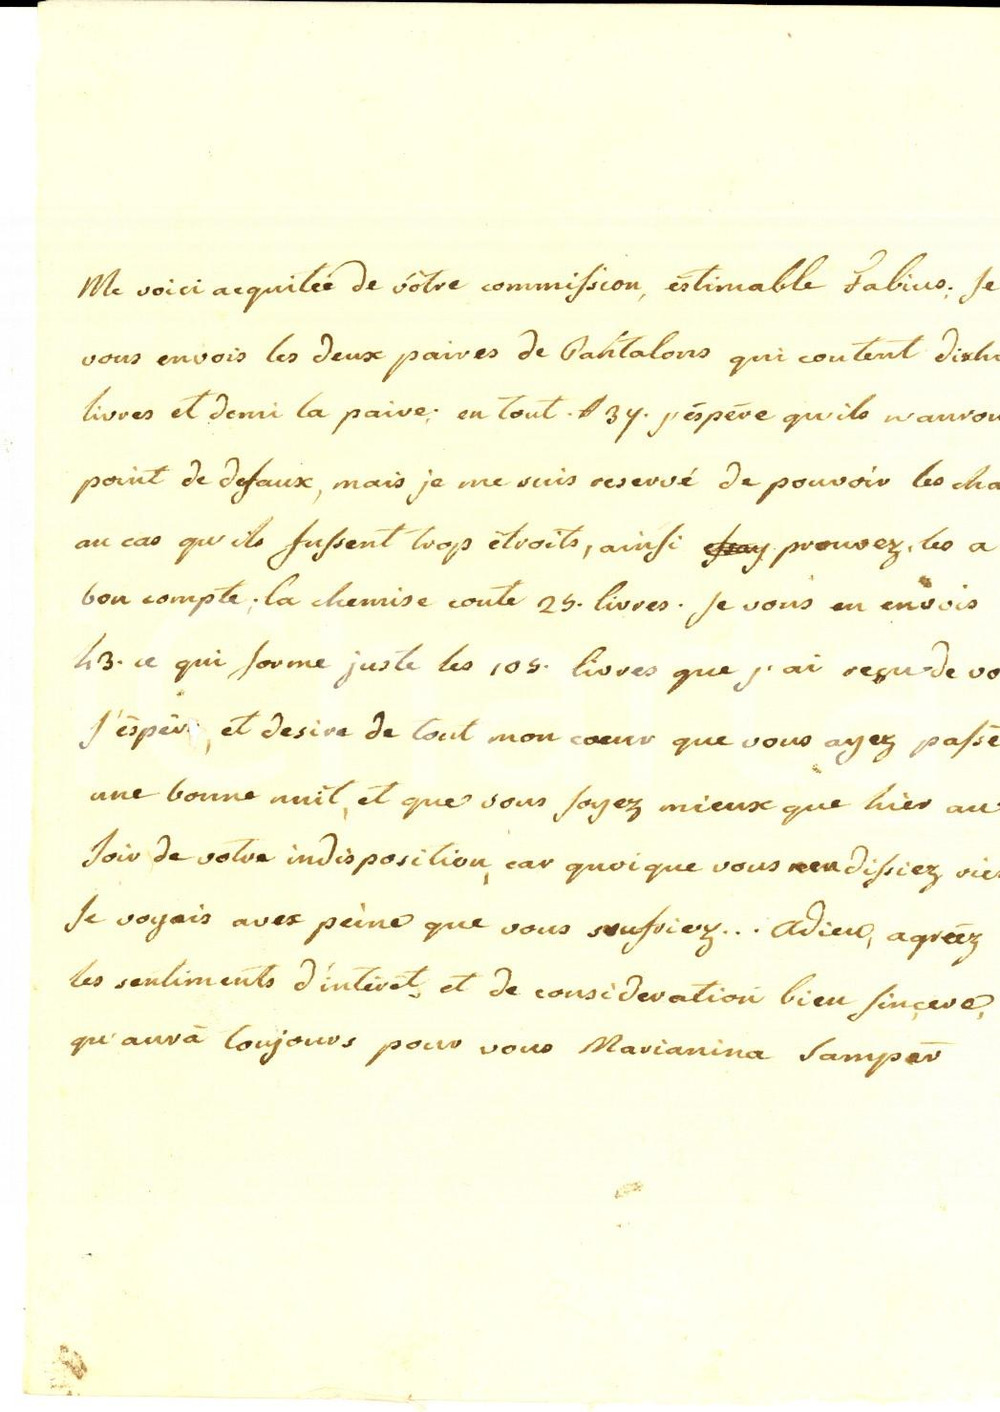 Me voici acquitée de vôtre commission, estimable Fabius. Je
vous envois les deux paires de Pantalons qui coutent dixhu
livres et demi la paire; en tout. # 37. j'éspére qu'ils n'auron
point de defaux, mais je me suis reservé de pouvoir les cha
au cas qu'ils fussent trop étroits, ainsi prouvez, les a
bon compte; la chemise coute 25. livres. Je vous en envois
43. ce qui forme juste les 105. livres que j'ai reçu de vo
J'éspér, et desire de tout mon coeur que vous ayez passé
une bonne nuit, et que vous soyez mieux que hier au
soir de votre indisposition, car quoique vous n'en dissiez rie
Je voyais avex peine que vous soufriez... Adieu, agréez
les sentiments d'intéret, et de consideration bien sincere,
qu'aurà toujours pour vous Marianina Samper